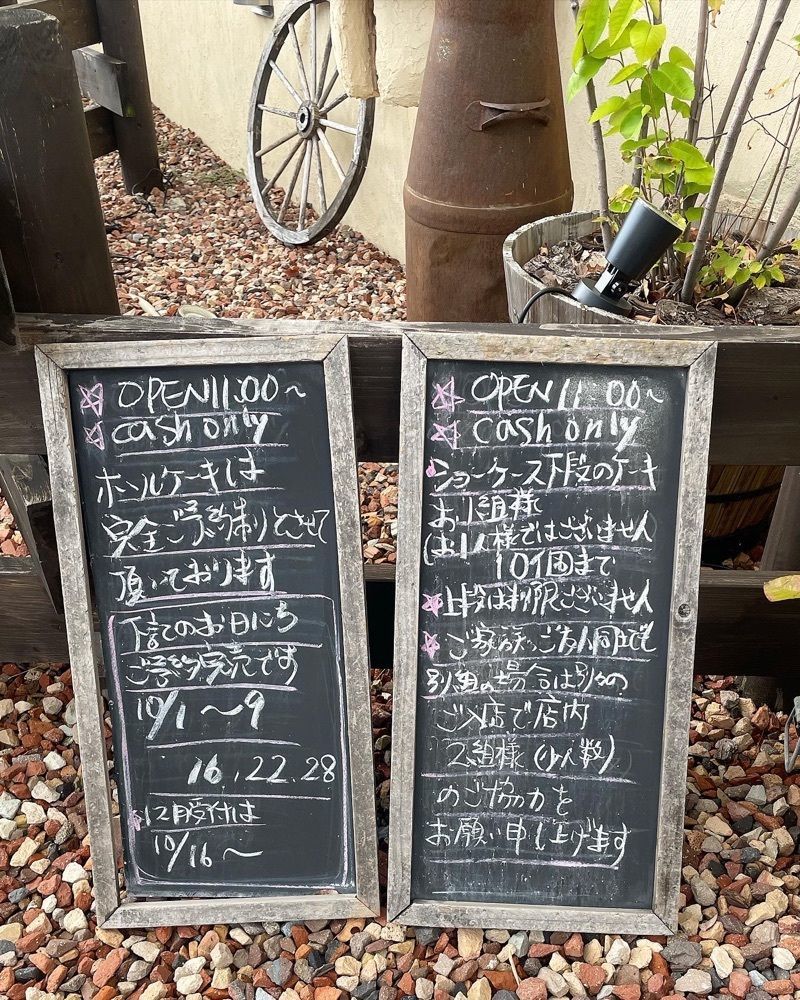 ☆ OPEN 11:00～
☆ cash only
ホールケーキは
完全ご予約制とさせて
頂いております
下記のお日にち
ご予約完売です
10/1～9
16.22.28
☆12月受付は
10/16～
☆ OPEN 11 00～
☆ cash only
ショーケース下段のケーキ
お1組様
(お1人様ではございません)
10個まで
☆上段は制限ございません
☆ご家族、ご友人同士でも
別組の場合は別々の
ご入店で店内
2組様(少人数)
のご協力を
お願い申し上げます